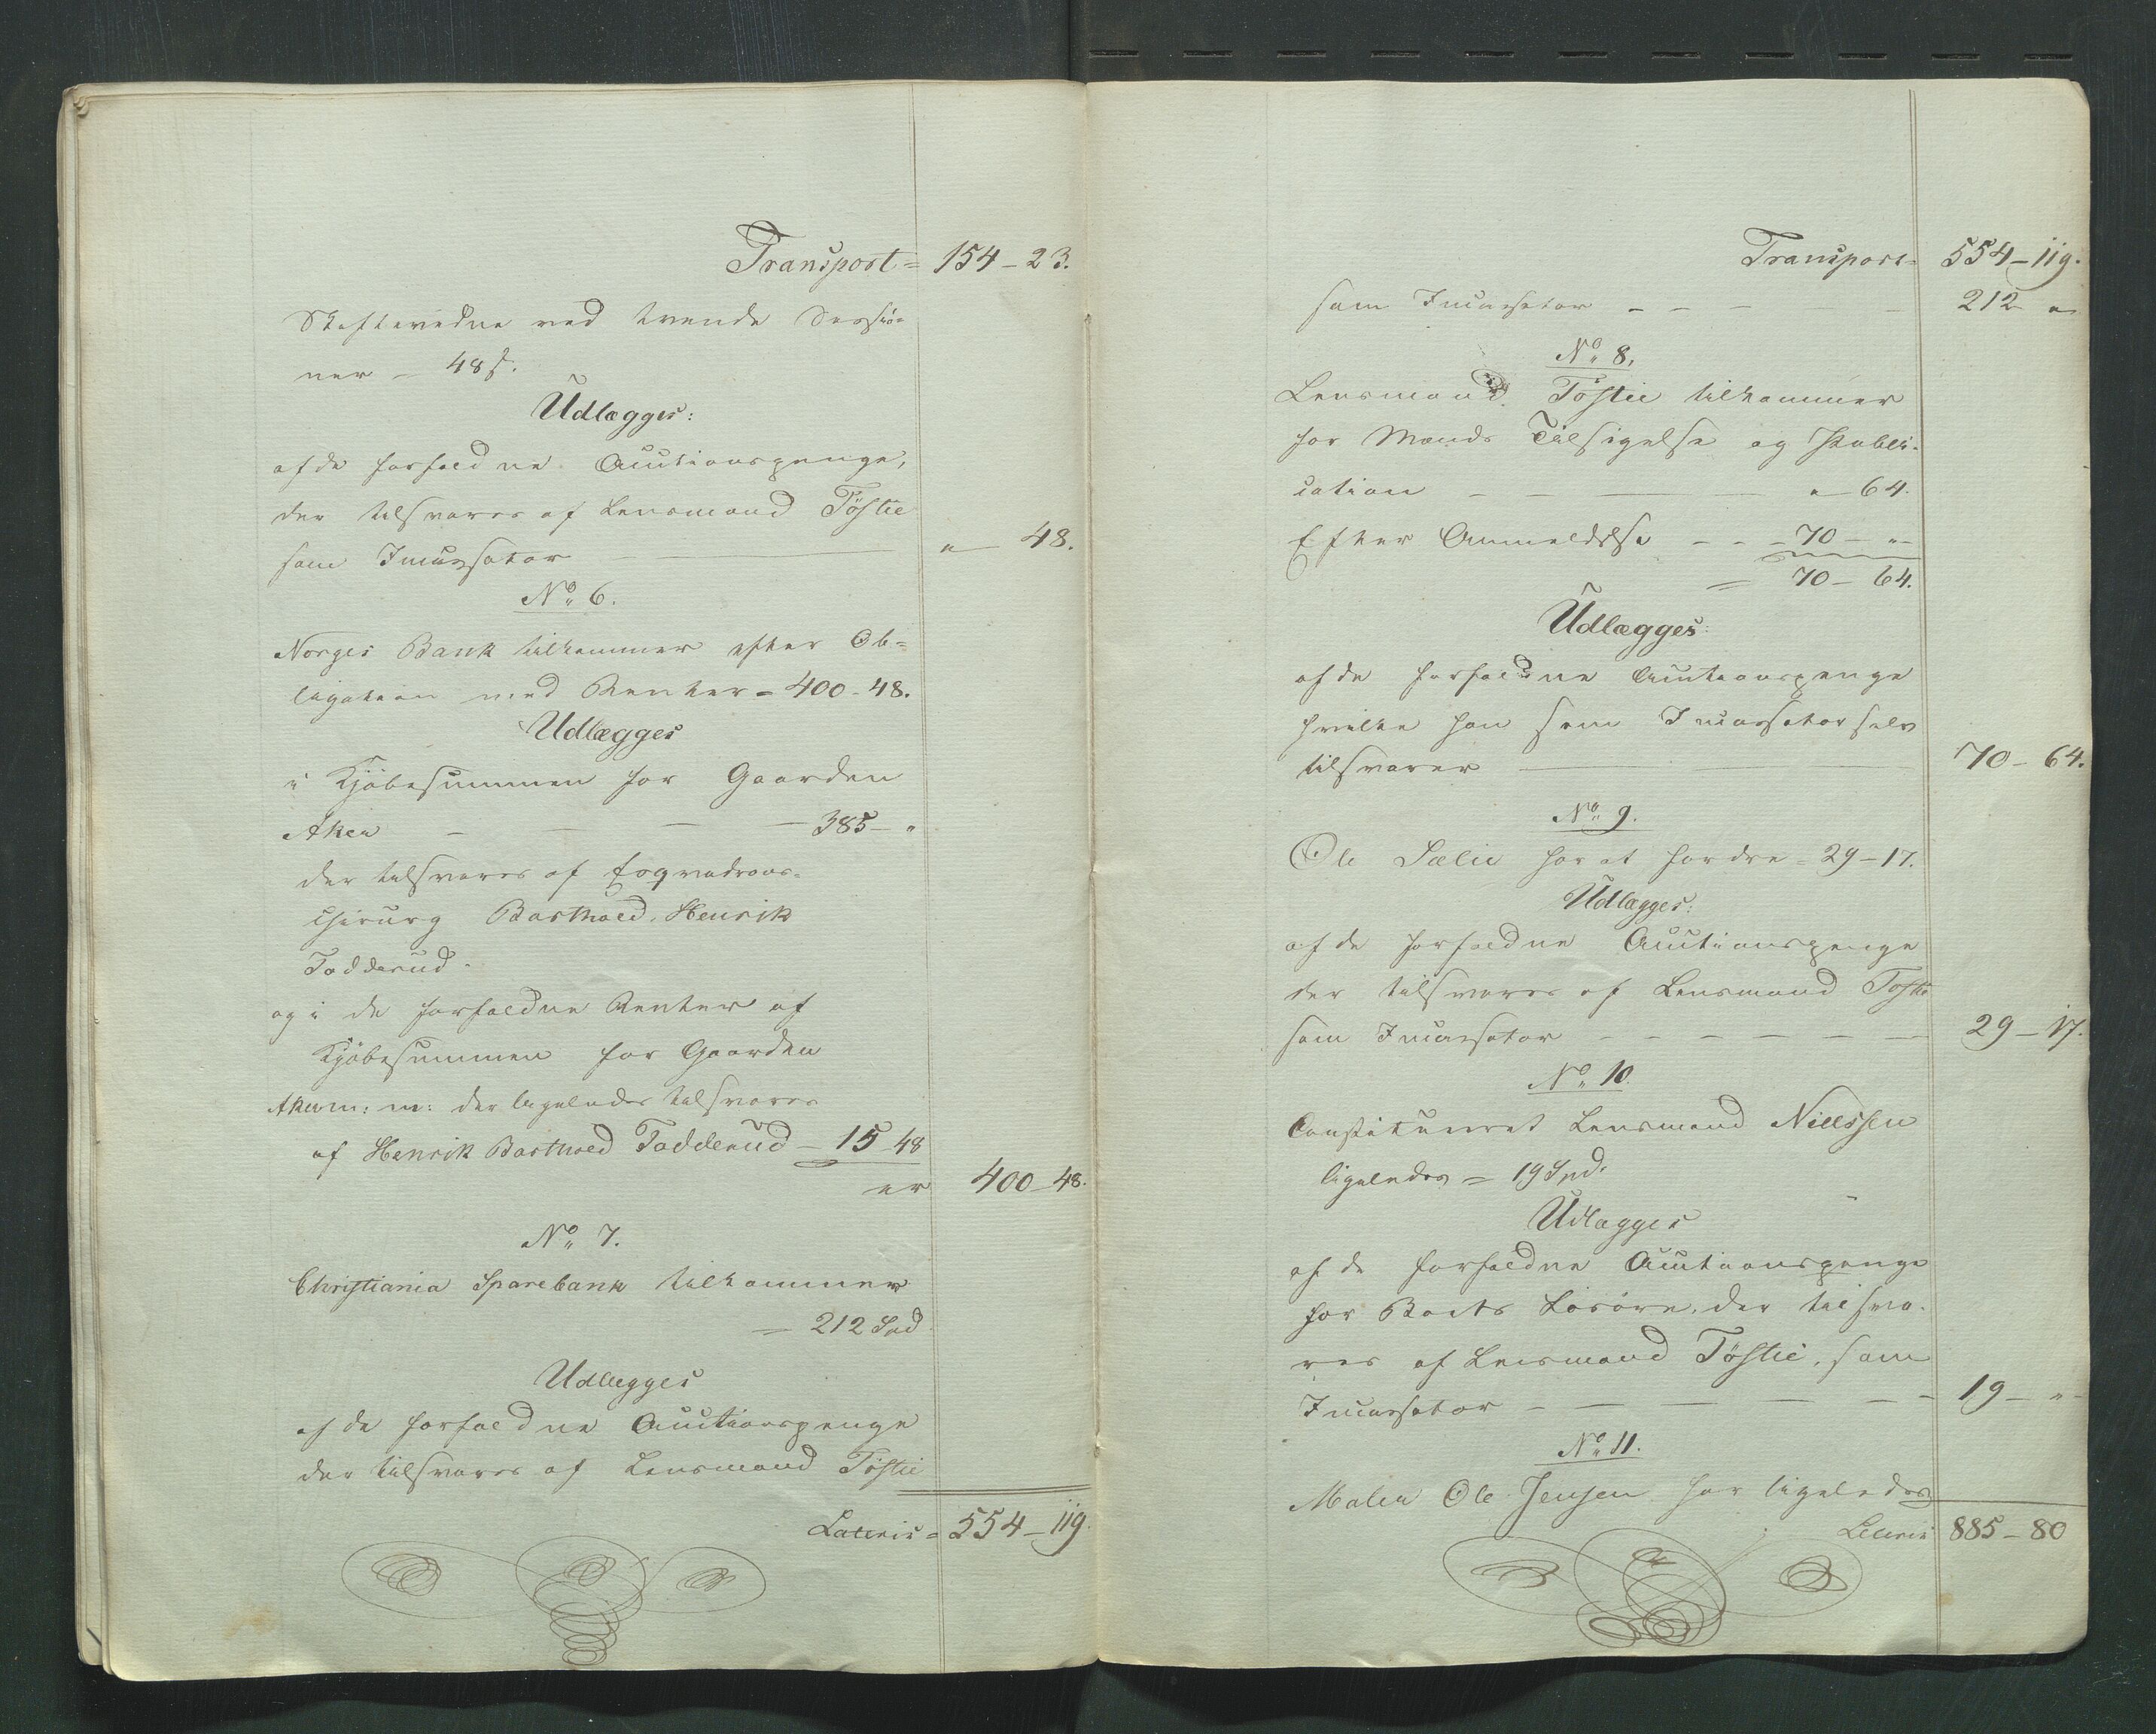 Transport = 154 – 23.
Skiftevidne ved tvende Sessio-
ner – 48 s.
Udlægges:
af de forfaldne Auctionspenge,
der tilsvares af Lensmand Töstie
som Incassator — " — 48.
No. 6.
Norges Bank tilkommer efter Ob-
ligation med Renter = 400 - 48.
Udlægges
i Kjöbesummen for Gaarden
Aker — — — 385 – "
der tilsvares af Esqvadrons-
chirurg Barthold Henrik
Todderud.
og i de forfaldne Renter af
Kjöbesummen for Gaarden
Aker m: m: der ligeledes tilsvares
af Henrik Barthold Todderud – 15 – 48
er 400 – 48.
No. 7.
Christiania Sparebank tilkommer
= 212 Spd
Udlægges
af de forfaldne Auctionspenge
der tilsvares af Lensmand Töstie
Lateris = 554 – 119
Transport = 554 – 119.
som Incassator – – – – 212 "
No. 8.
Lensmand Töstie tilkommer
for Mands Tilsigelse og Publi-
cation – – — — " – 64.
Efter Anmeldelse – – – 70 – "
= 70 – 64.
Udlægges:
af de forfaldne Auctionspenge
hvilke han som Incassator selv
tilsvarer — — 70 – 64.
No. 9.
Ole Sælie har at fordre = 29 – 17.
Udlægges:
af de forfaldne Auctionspenge
der tilsvares af Lensmand Töstie
som Incassator – – – – – – 29 – 17.
No. 10.
Constitueret Lensmand Nielssen
ligeledes = 19 Spd.
Udlægges
af de forfaldne Auctionspenge
for Boets Lösöre, der tilsva-
res af Lensmand Töstie, som
Incassator – – — — – – 19 – "
No. 11.
Maler Ole Jensen har ligeledes
Lateris 885 – 80